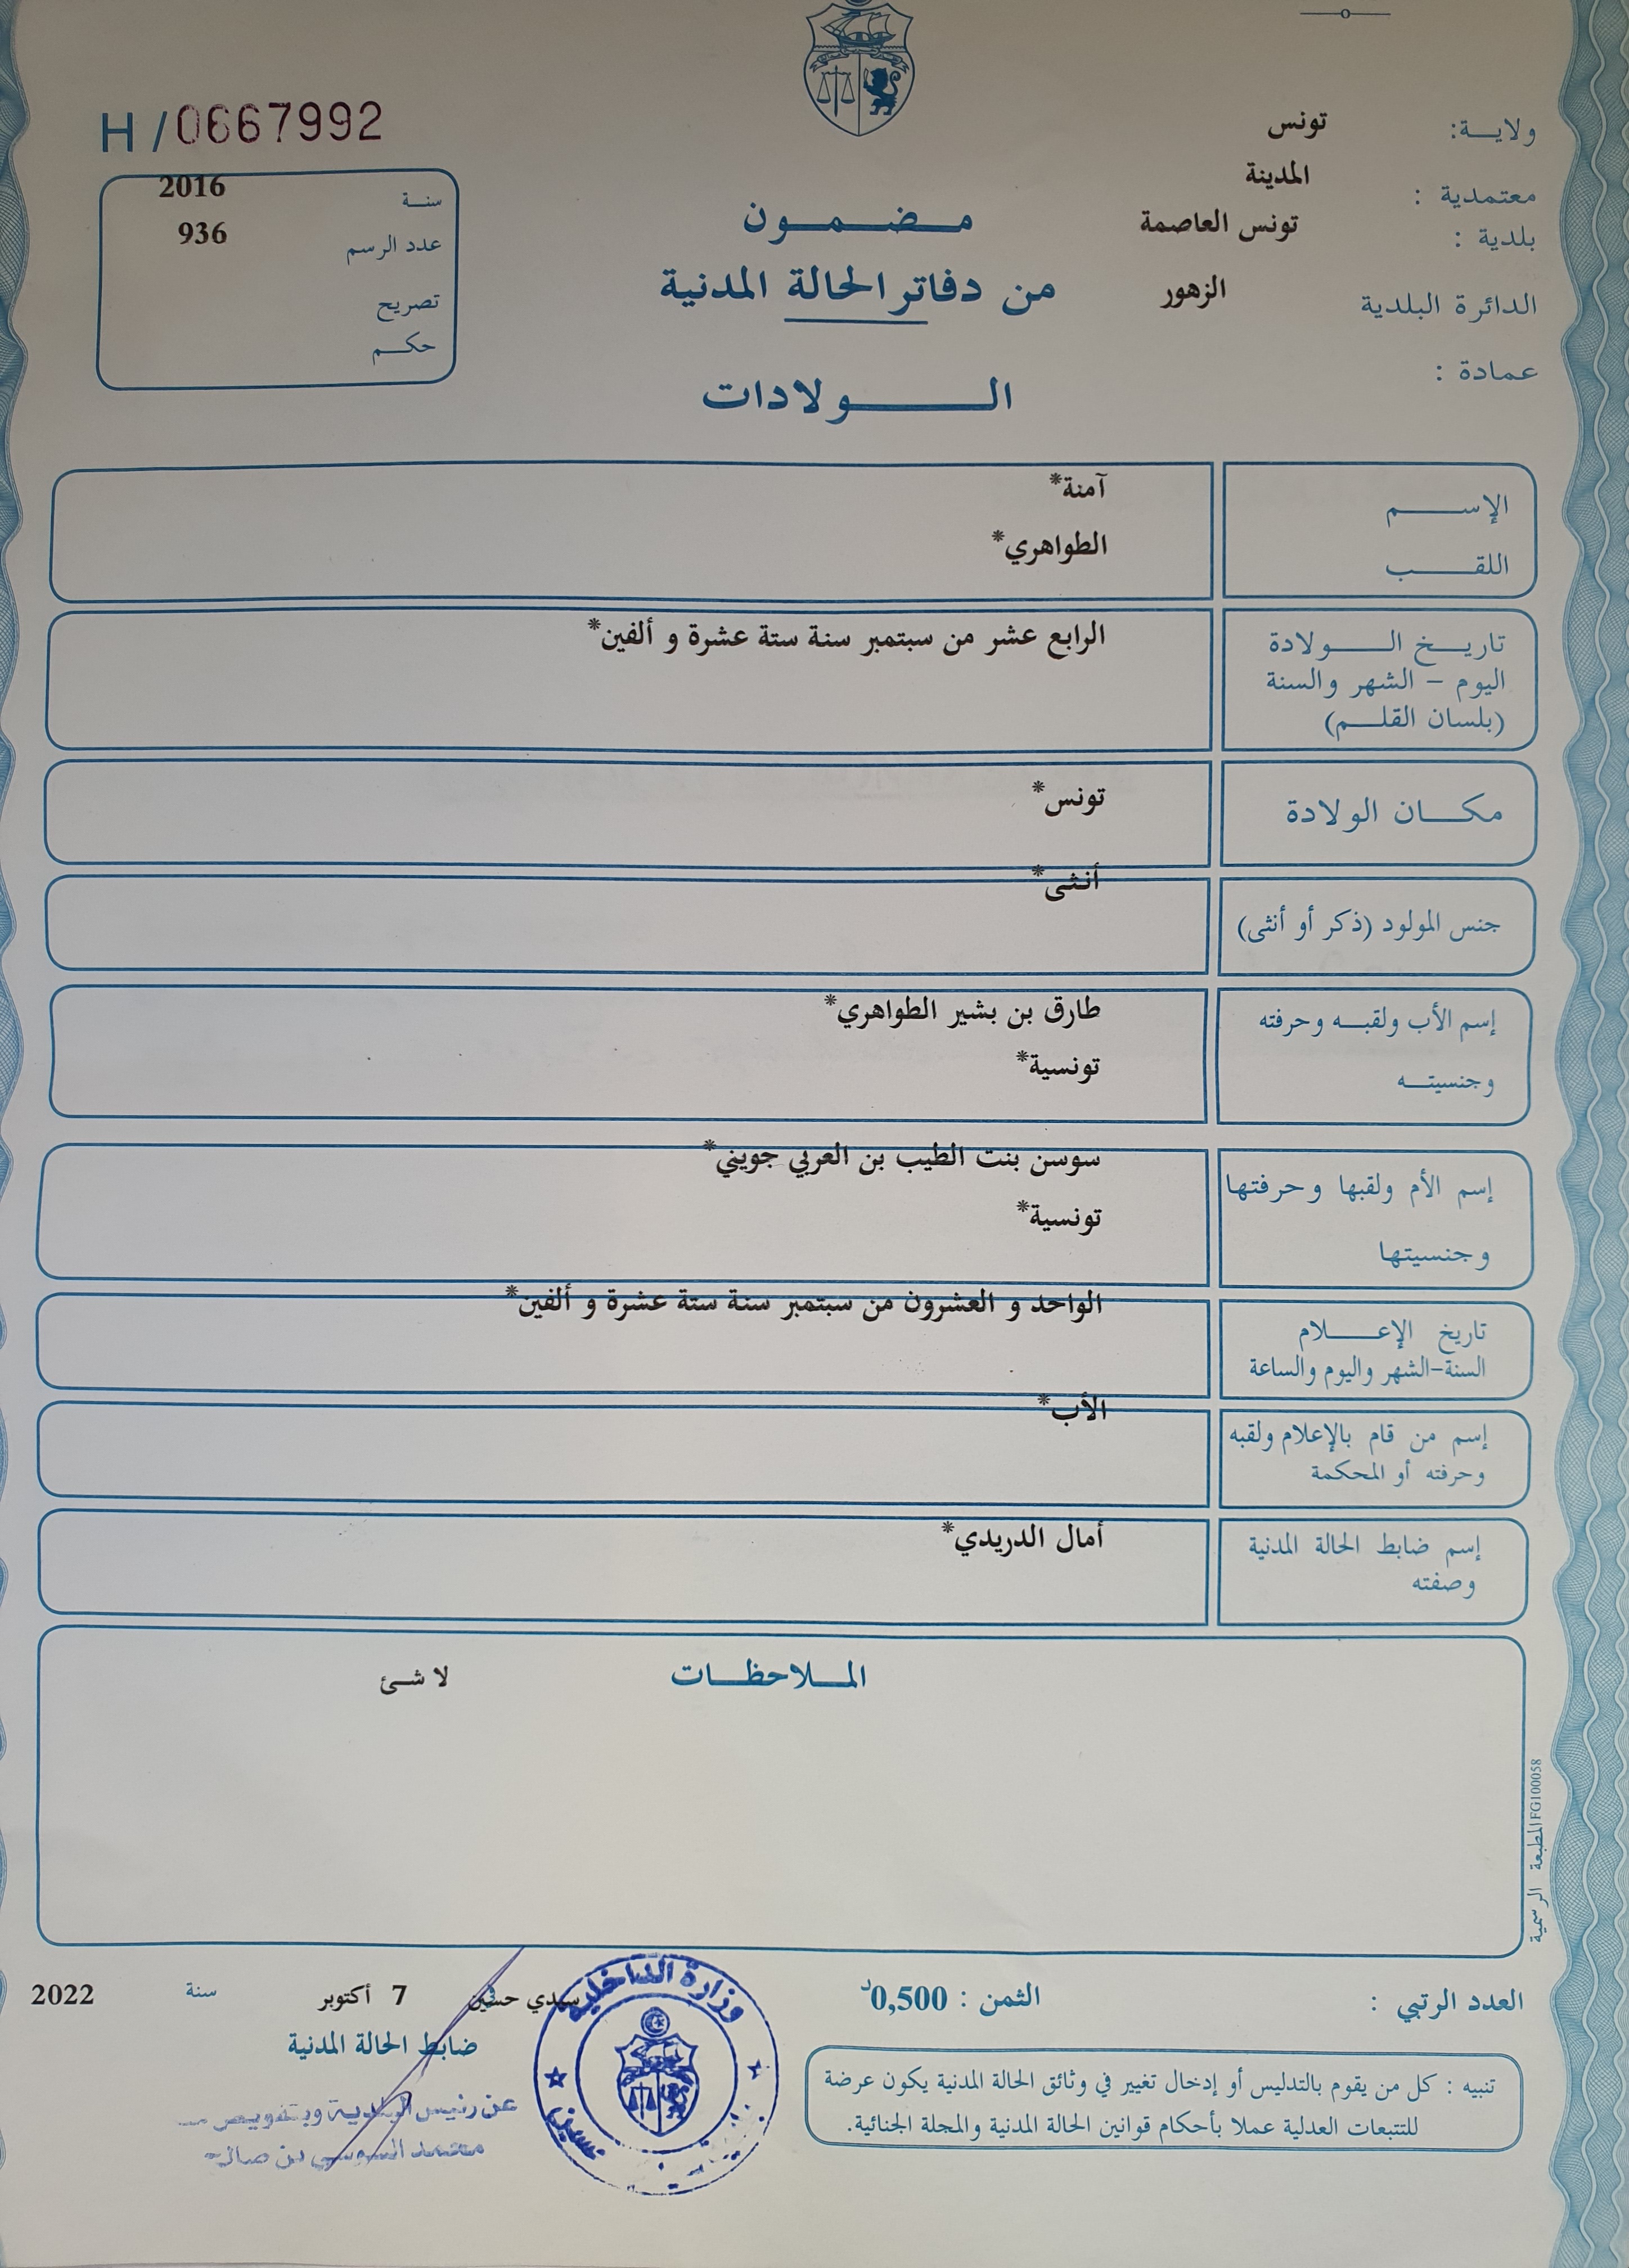 H/0667992
ولاية: تونس
معتمدية : المدينة
بلدية : تونس العاصمة
الدائرة البلدية الزهور
عمادة :
سنة 2016
عدد الرسم 936
تصريح
حكم
مضمون
من دفاتر الحالة المدنية
الولادات
الإسم آمنة*
اللقب الطواهري*
تاريخ الولادة الرابع عشر من سبتمبر سنة ستة عشرة و ألفين*
اليوم - الشهر والسنة
(بلسان القلم)
مكان الولادة تونس*
جنس المولود (ذكر أو أنثى) أنثى*
إسم الأب ولقبه وحرفته طارق بن بشير الطواهري*
وجنسيته تونسية*
إسم الأم ولقبها وحرفتها سوسن بنت الطيب بن العربي جويني*
وجنسيتها تونسية*
تاريخ الإعلام الواحد و العشرون من سبتمبر سنة ستة عشرة و ألفين*
السنة-الشهر واليوم والساعة
إسم من قام بالإعلام ولقبه الأب*
وحرفته أو المحكمة
إسم ضابط الحالة المدنية أمال الدريدي*
وصفته
الملاحظات لا شئ
المطبعة الرسمية FG100058
العدد الرتبي :
الثمن : 0,500د
سيدي حسين 7 أكتوبر سنة 2022
ضابط الحالة المدنية
عن رئيس البلدية وبتفويض
محمد السوسي بن صالح
وزارة الداخلية
تنبيه : كل من يقوم بالتدليس أو إدخال تغيير في وثائق الحالة المدنية يكون عرضة
للتتبعات العدلية عملا بأحكام قوانين الحالة المدنية والمجلة الجنائية.